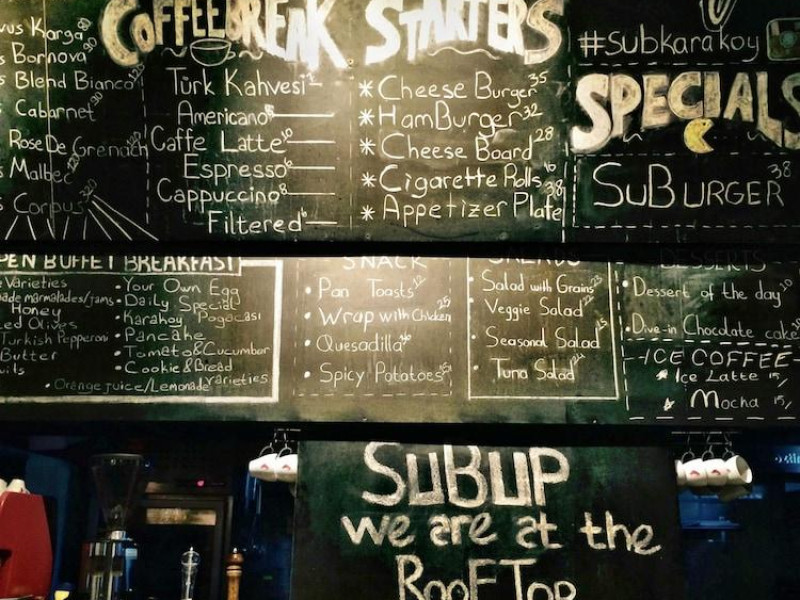 Karga 90
Bornova 90
Blend Bianco
Cabernet 90
Rose De Grenach
Malbec
Corpus 220
COFFEEBREAK
Türk Kahvesi 7
Americano 8
Caffe Latte 10
Espresso 6
Cappuccino 8
Filtered 6
STARTERS
* Cheese Burger 35
* HamBurger 32
* Cheese Board 28
* Cigarette Rolls 16
* Appetizer Plate 38
#subkarakoy
SPECIALS
SuBURGER 38
PEN BUFFET BREAKFAST
Varieties
ade marmalades/jams
Honey
ed Olives
Turkish Pepperoni
Butter
• Your Own Egg
• Daily Special
• Karaköy Pogacası
• Pancake
• Tomato&Cucumber
• Cookie&Bread Varieties
• Orange juice/Lemonade
SNACK
• Pan Toasts 12
• Wrap with Chicken 25
• Quesadilla 16
• Spicy Potatoes 15
SALADS
• Salad with Grains 23
• Veggie Salad 22
• Seasonal Salad 15
• Tuna Salad 24
DESSERTS
• Dessert of the day 10
• Dive-in Chocolate cake
-ICE COFFEE-
* Ice Latte 15/
* Mocha 15/
SUBUP
we are at the
RooFTop